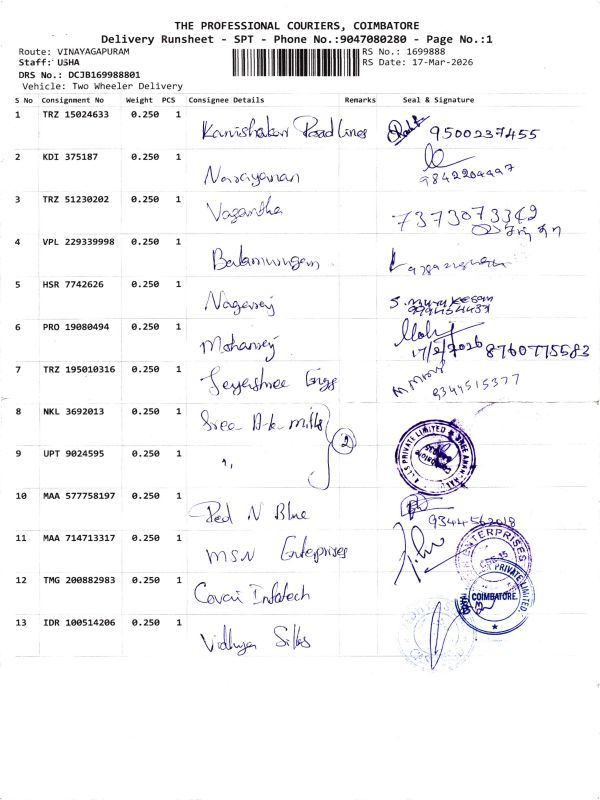 THE PROFESSIONAL COURIERS, COIMBATORE
Delivery Runsheet - SPT - Phone No.:9047080280 - Page No.:1
Route: VINAYAGAPURAM RS No.: 1699888
Staff: USHA RS Date: 17-Mar-2026
DRS No.: DCJB169988801
Vehicle: Two Wheeler Delivery
S No Consignment No Weight PCS Consignee Details Remarks Seal & Signature
1 TRZ 15024633 0.250 1 Kanishakar Road Lines 9500237455
2 KDI 375187 0.250 1 Narayanan
3 TRZ 51230202 0.250 1 Vasantha 7373073342
4 VPL 229339998 0.250 1 Balamurugan
5 HSR 7742626 0.250 1 Nagaraj S. murukesan
6 PRO 19080494 0.250 1 Mohanraj 8760775583
7 TRZ 195010316 0.250 1 Jeyashree Engg 9344515377
8 NKL 3692013 0.250 1 Sree A-k mills 2
9 UPT 9024595 0.250 1 "
10 MAA 577758197 0.250 1 Red N Blue 9344562018
11 MAA 714713317 0.250 1 MSN Enterprises ENTERPRISES
12 TMG 200882983 0.250 1 Covai Infotech PRIVATE LIMITED COIMBATORE
13 IDR 100514206 0.250 1 Vidhya Silks